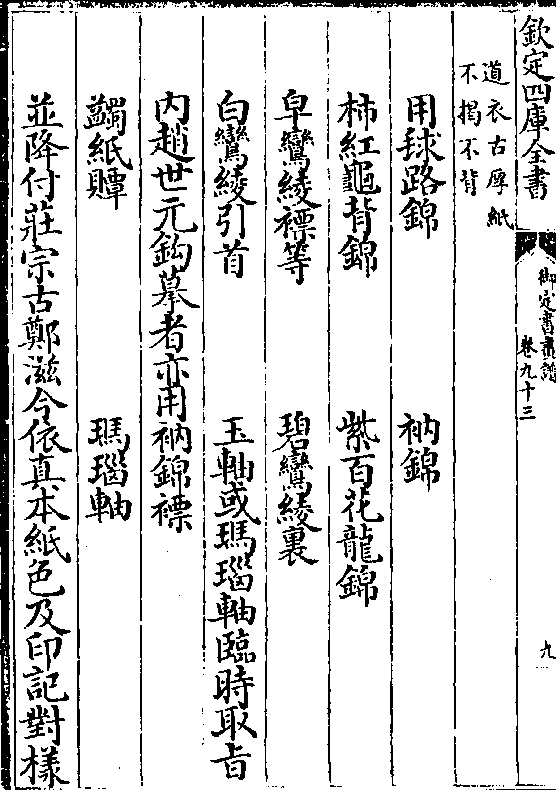 欽定四庫全書
御定書畫譜
卷九十三
九
道衣古厚紙
不揭不背
用毬路錦 衲錦
柿紅龜背錦 紫百花龍錦
皁鸞綾褾等 碧鸞綾裏
白鸞綾引首 玉軸或瑪瑙軸臨時取旨
内趙世元鈎摹者亦用衲錦褾
蠲紙贉 瑪瑙軸
並降付莊宗古鄭滋令依真本紙色及印記對樣